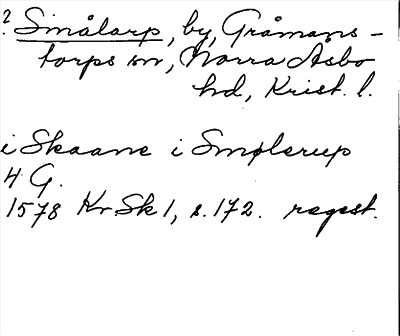 ? Smålarp, by, Gråmans-
torps sn, Norra Åsbo
hd, Krist. l.
i Skaane i Smølerup
4 G.
1578 Kr Sk 1, s. 172. regest.